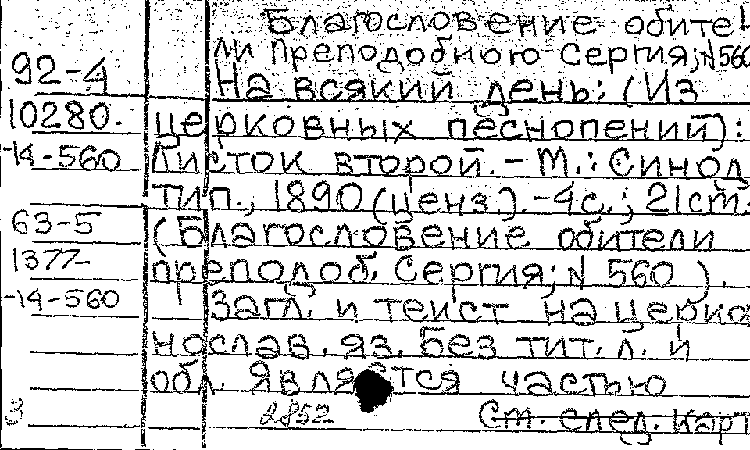 Благословение обите-
ли Преподобного Сергия; N 560
92-4 На всякий день: (Из
10280. церковных песнопений):
-14-560 Листок второй. - М.: Синод.
тип., 1890 (ценз.). - 4с.; 21см.
63-5 (Благословение обители
1377- преподоб. Сергия; N 560).
-14-560 Загл. и текст на церко-
нослав. яз. Без тит. л. и
обл. Является частью
3 2852 См. след. карт